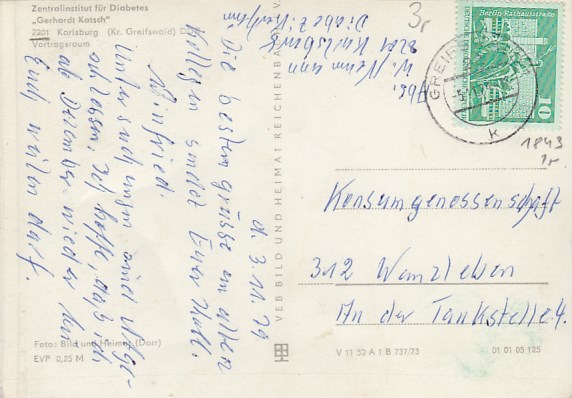 Zentralinstitut für Diabetes
„Gerhardt Katsch"
2201 Karlsburg (Kr. Greifswald)
Vortragsraum
d. 3.11.79
Die besten Grüße an allen
Kollegen sendet Euer Koll.
Winfried.
Untersuchungen sind abge-
schlossen, ich hoffe, daß ich
ab Dezember wieder bei
Euch weilen darf.
Abs.
W. Neumann
2201 Karlsburg
Diabetes
3r
GREIFSWALD
k
Berlin·Rathausstraße
DDR
10
1843
1r
Konsumgenossenschaft
312 Wanzleben
An der Tankstelle 4.
VEB BILD UND HEIMAT REICHENBACH i. V.
Foto: Bild und Heimat (Darr)
EVP 0,25 M
V 11 50 A 1 B 737/73
01 01 05 125